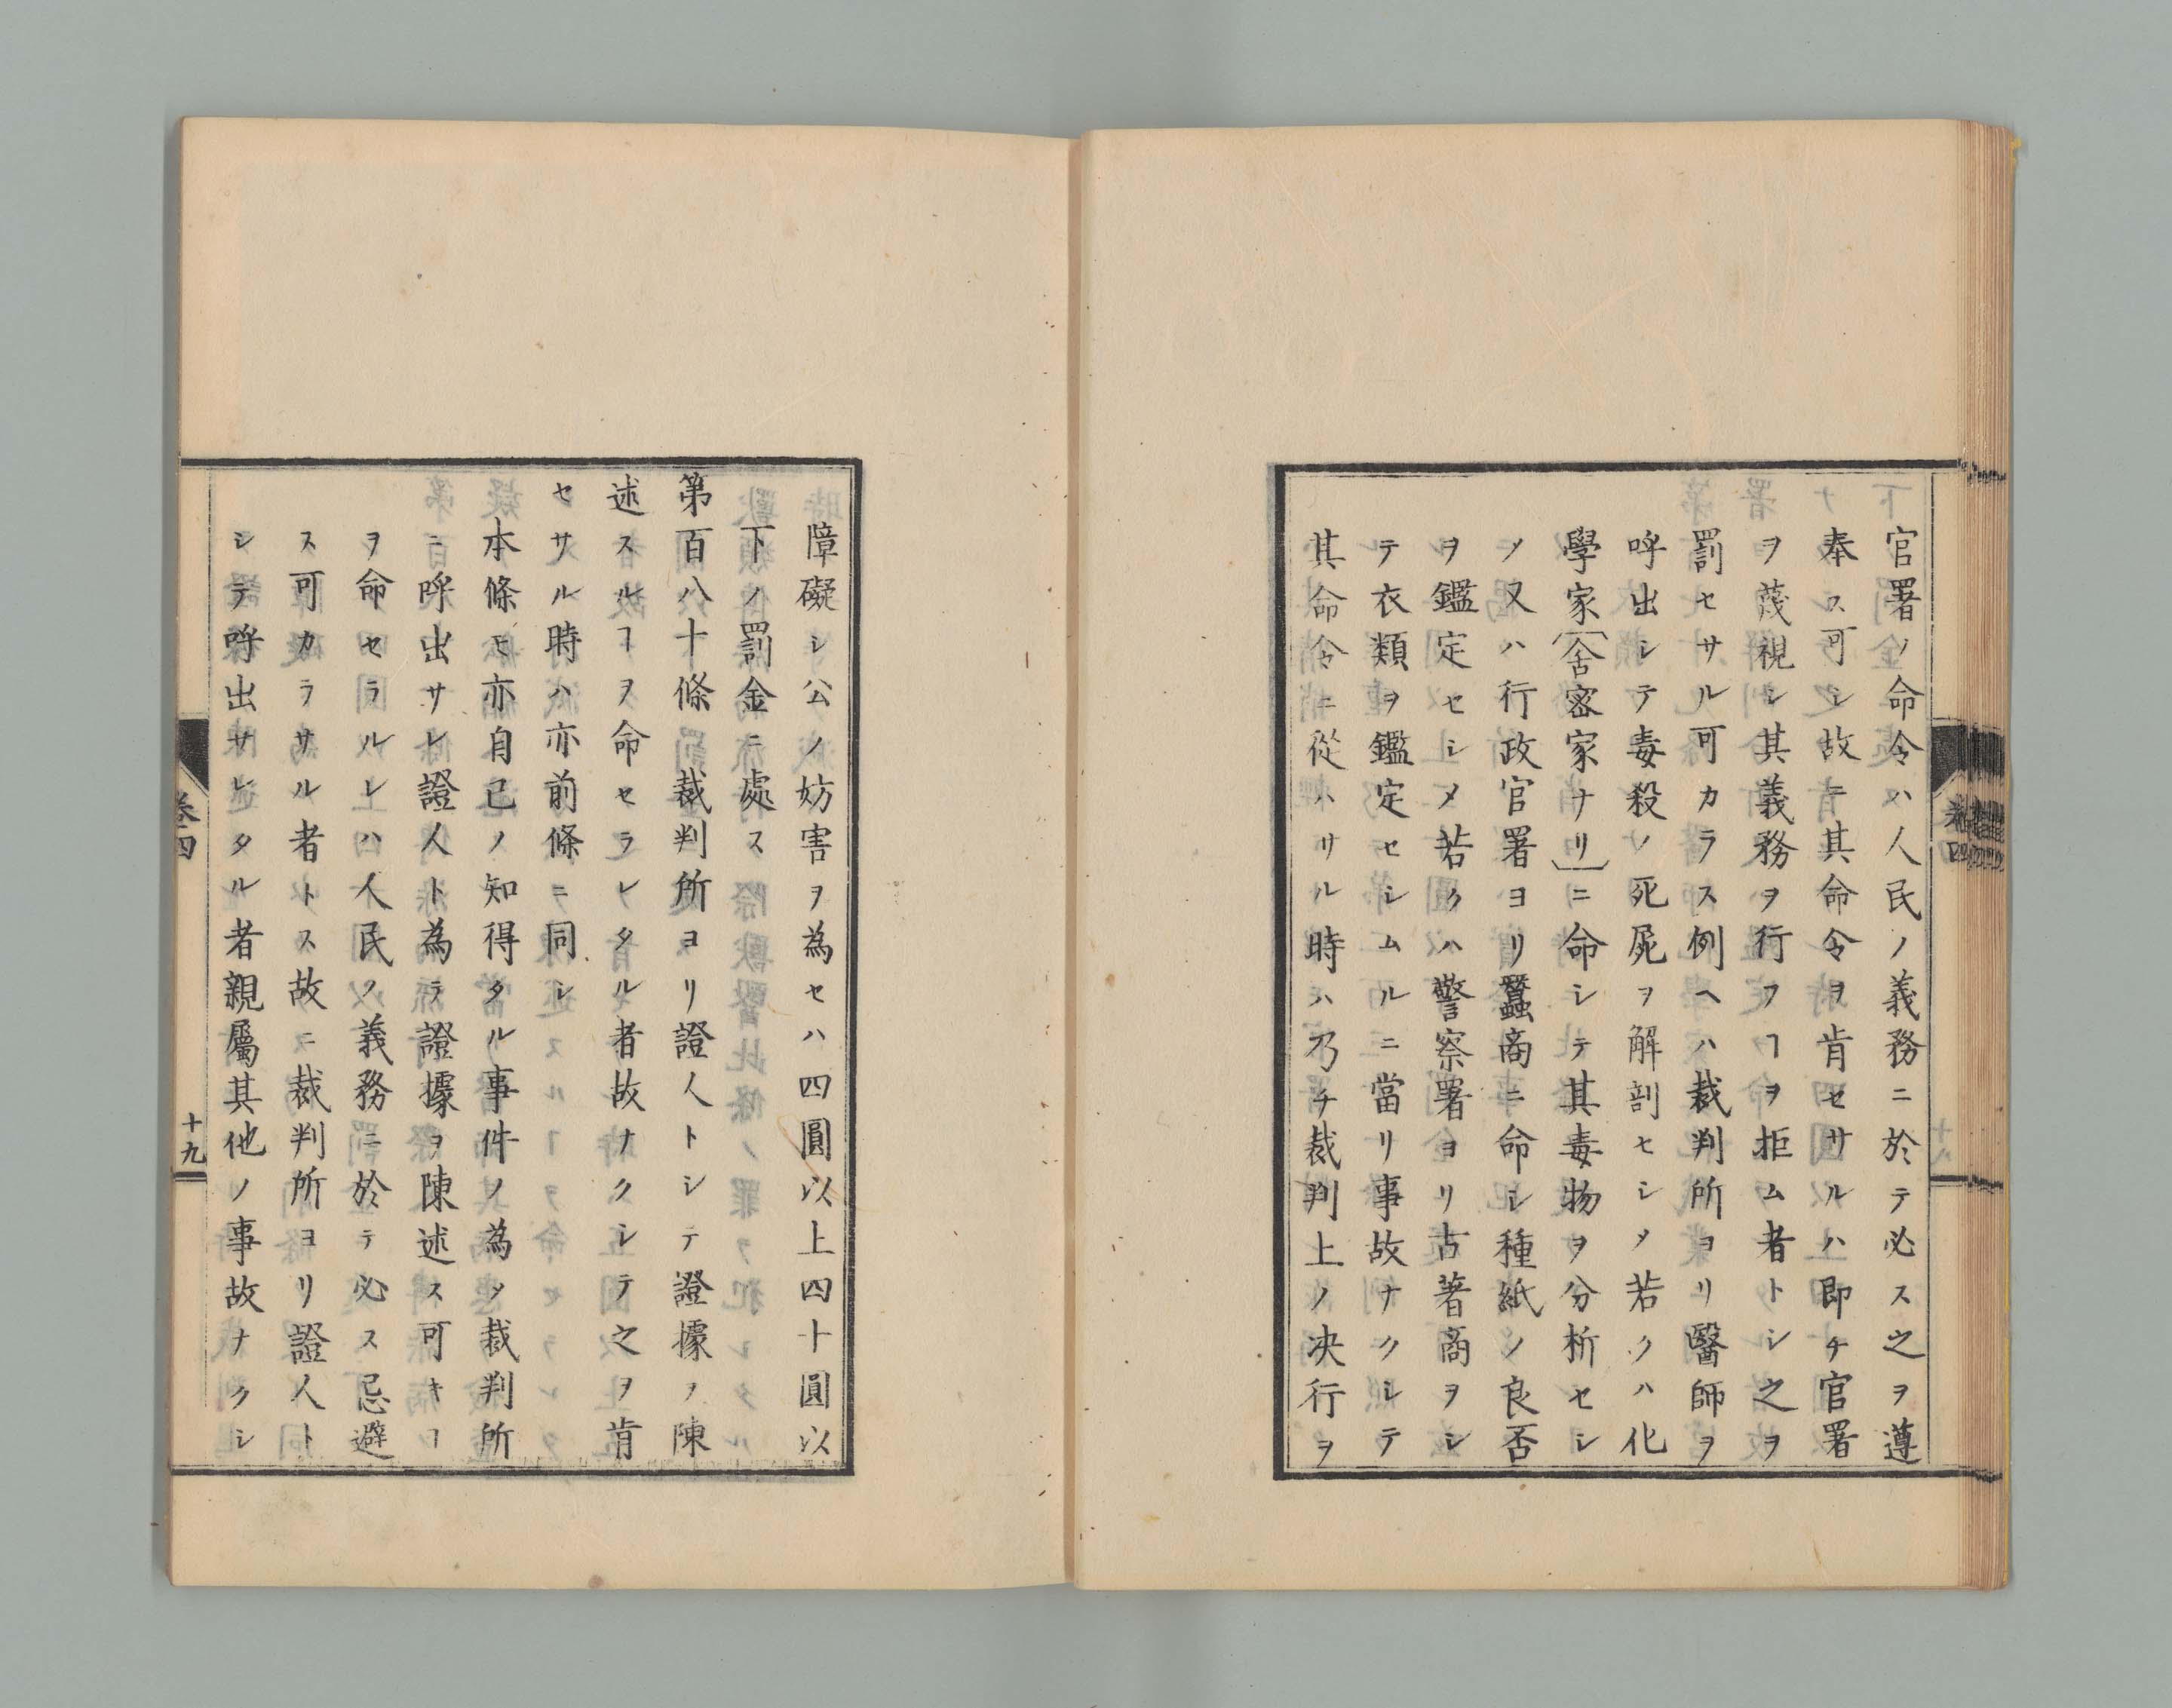 官署ノ命令ハ人民ノ義務ニ於テ必ス之ヲ遵
奉ス可シ故ニ其命令ヲ肯セサルハ即チ官署
ヲ蔑視シ其義務ヲ行フヿヲ拒ム者トシ之ヲ
罰セサル可カラス例ヘハ裁判所ヨリ醫師ヲ
呼出シテ毒殺ノ死屍ヲ解剖セシメ若クハ化
學家〔舎密家ナリ〕ニ命シテ其毒物ヲ分析セシ
メ又ハ行政官署ヨリ蠶商ニ命シ種紙ノ良否
ヲ鑑定セシメ若クハ警察署ヨリ古著商ヲシ
テ衣類ヲ鑑定セシムルニ當リ事故ナクシテ
其命令ニ從ハサル時ハ乃チ裁判上ノ决行ヲ
卷四
障礙シ公ノ妨害ヲ為セハ四圓以上四十圓以
下ノ罰金ニ處ス
第百八十條裁判所ヨリ證人トシテ證據ヲ陳
述スルヿヲ命セラレタル者故ナクシテ之ヲ肯
セサル時ハ亦前條ニ同シ
本條モ亦自己ノ知得タル事件ノ為メ裁判所
ニ呼出サレ證人ト為テ證據ヲ陳述ス可キヿ
ヲ命セラルレハ人民ノ義務ニ於テ必ス忌避
ス可カラサル者トス故ニ裁判所ヨリ證人ト
シテ呼出サレタル者親屬其他ノ事故ナクシ
卷四
十九